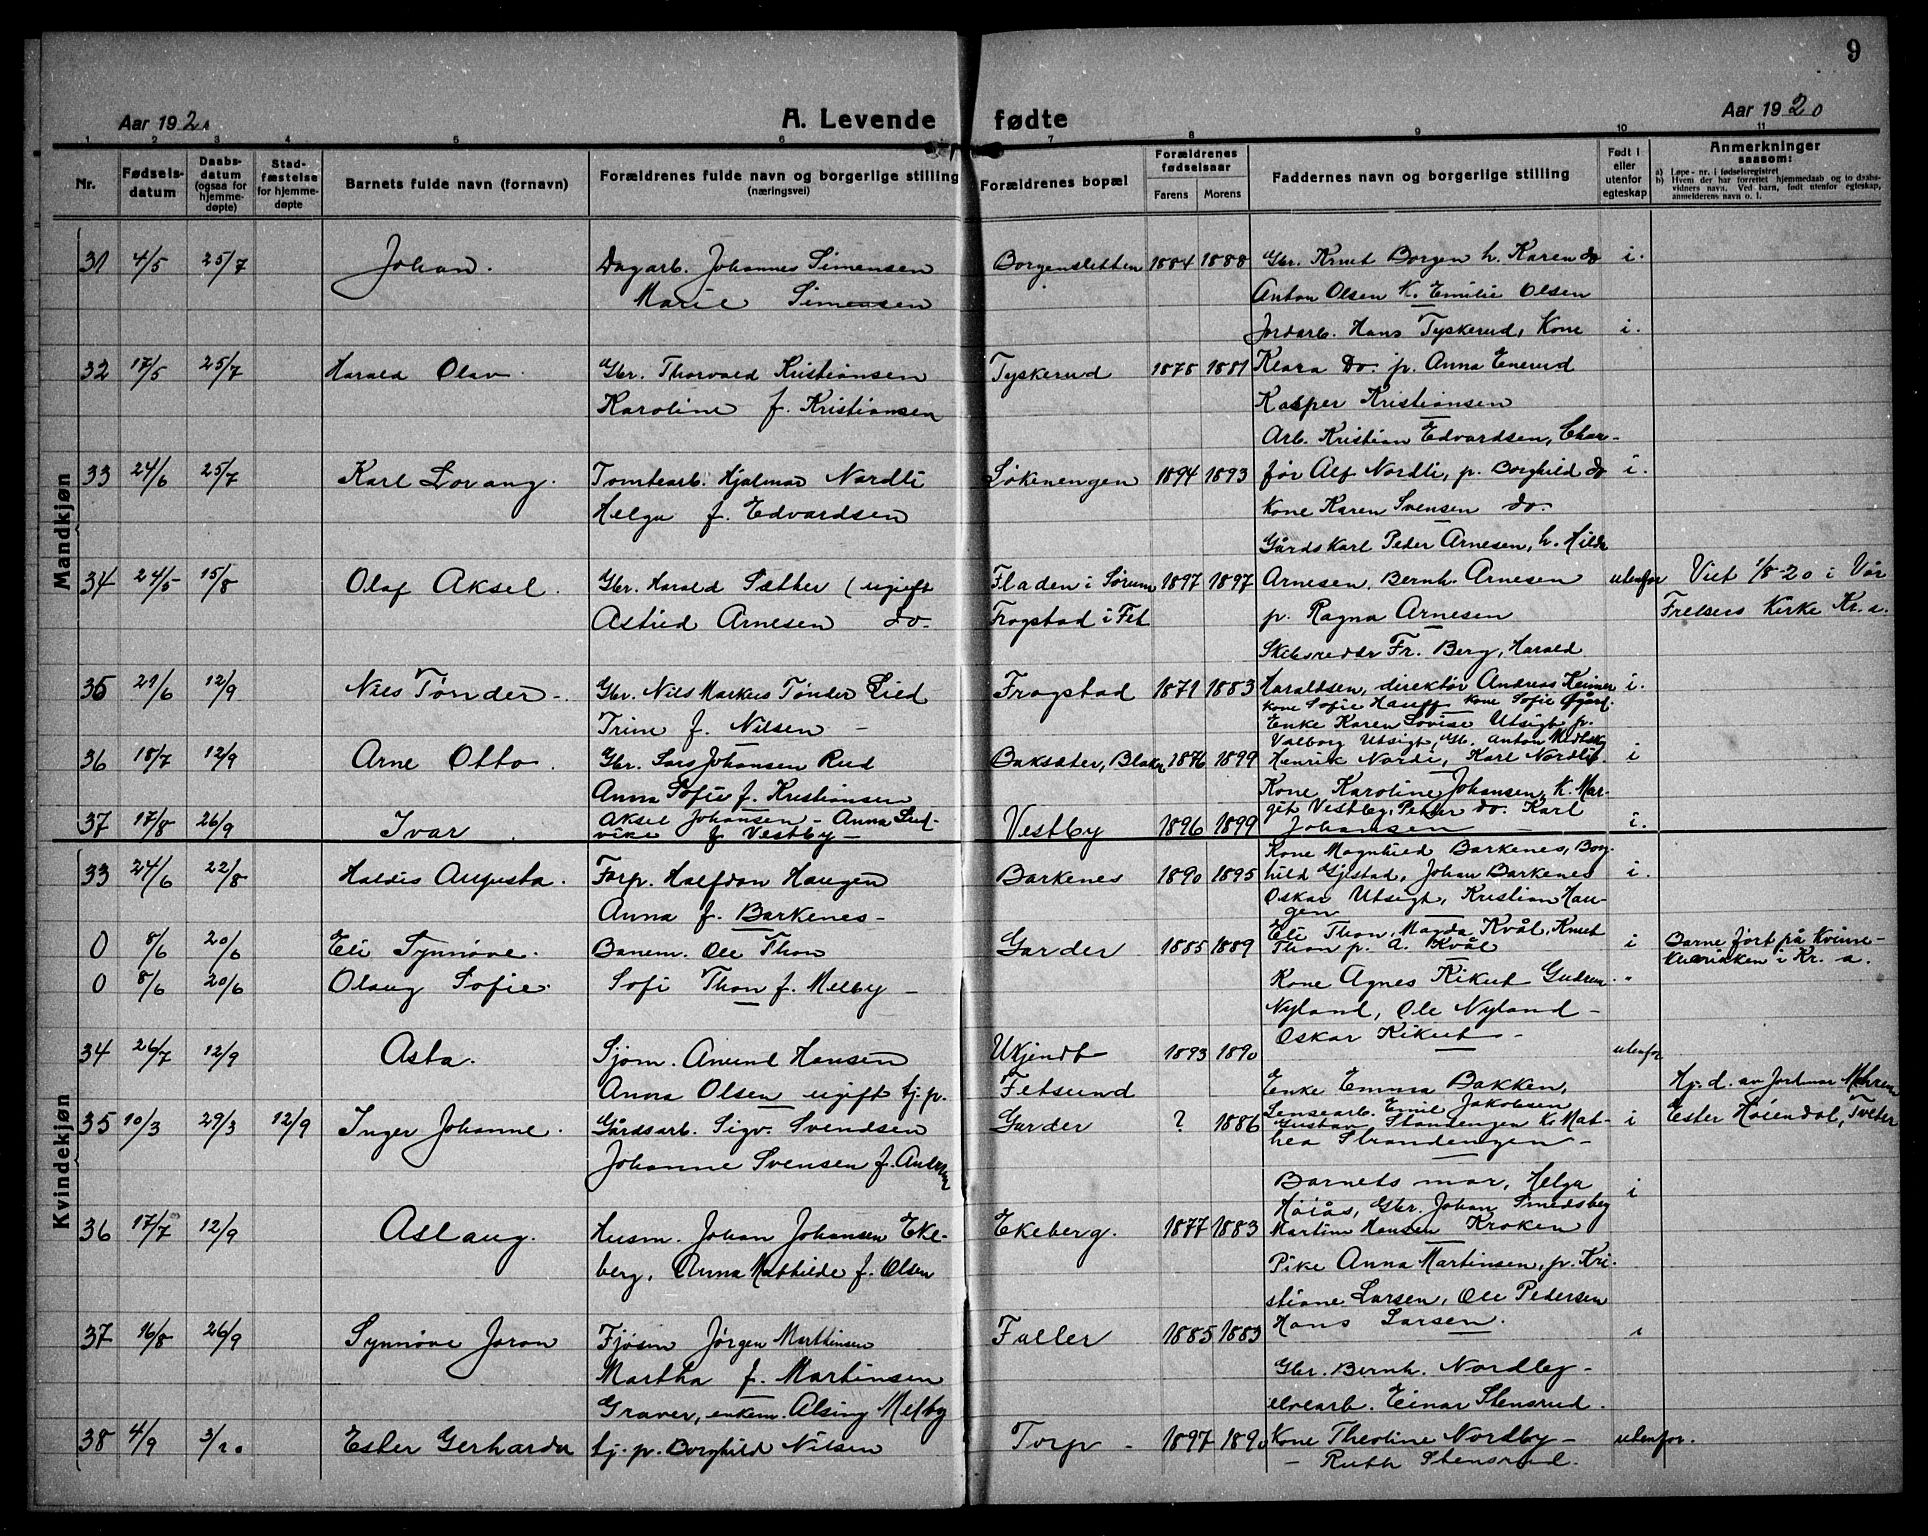 9
Aar 1920
A. Levende fødte
Aar 1920
1 2 3 4 5 6 7 8 9 10 11
Nr.
Fødsels-
datum
Daabs-
datum
(ogsaa for
hjemme-
døpte)
Stad-
fæstelse
for hjemme-
døpte
Barnets fulde navn (fornavn)
Forældrenes fulde navn og borgerlige stilling
(næringsvei)
Forældrenes bopæl
Forældrenes
fødselsaar
Farens Morens
Faddernes navn og borgerlige stilling
Født i
eller
utenfor
egteskap
Anmerkninger
saasom:
a) Løpe-nr. i fødselsregistret
b) Hvem der har forrettet hjemmedaab og to daabs-
vidners navn. Ved barn, født utenfor egteskap,
anmelderens navn o. l.
Mandkjøn
31 4/5 25/7 Johan. Dagarb. Johannes Simensen Borgensletten 1884 1888 Gbr. Knut Borgen h. Karen do i.
Marie Simensen Anton Olsen K. Emilie Olsen
Jordarb. Hans Tyskerud, Kone i.
32 17/5 25/7 Harald Olav. Gbr. Thorvald Kristiansen Tyskerud 1878 1881 Klara Do. p. Anna Enerud
Karoline f. Kristiansen Kasper Kristiansen
Arb. Kristian Edvardsen, Char-
33 24/6 25/7 Karl Lovang. Tomtearb. Hjalmar Nordli Løkenengen 1894 1893 før Alf Nordli, p. Borghild do i.
Helga f. Edvardsen Kone Karen Svensen do.
Gårdskarl Peder Arnesen, h. Hilda
34 24/5 15/8 Olaf Aksel. Gbr. Harald Sæther (ugift Fladen i Sørum 1897 1897 Arnesen, Bernh. Arnesen utenfor Viet 1/8-20 i Vår
Astrid Arnesen do. Frogstad i Fet p. Ragna Arnesen Frelsers Kirke Kr.a.
Skibsreder Fr. Berg, Harald
35 21/6 12/9 Nils Tønder - Gbr. Nils Markus Tønder Lied Frogstad 1871 1883 Haraldsen, direktør Andreas Heimer i.
Kone Sofie Hauff Kone Sofie Øgård
Trine f. Nilsen - Enke Karen Lovise Utsigt p.
Valborg Utsigt, Gb. Anton
36 18/7 12/9 Arne Otto. Gbr. Lars Johansen Rud Baksæter, Blaker 1876 1899 Henrik Nordli, Karl Nordlie i
Anna Sofie f. Kristiansen Kone Karoline Johansen, K. Mar-
git Vestby, Petter do. Karl
37 17/8 26/9 Ivar. Aksel Johansen - Anna Lud- Vestby 1896 1899 Johansen - i.
vike f. Vestby -
Kvindekjøn
Kone Magnhild Barkenes, Borg-
33 24/6 22/8 Haldis Augusta. Forp. Halfdan Haugen Barkenes 1890 1895 hild Gjestad, Johan Barkenes i.
Anna f. Barkenes - Oskar Utsigt, Kristian Hau-
gen
Eli Thon, Magda Kvål, Knut
0 8/6 20/6 Eli Synnøve. Banem. Ole Thon Garder 1885 1889 Thon p. A. Kvål i Barne født på Kvinne-
klinikken i Kr. a.
0 8/6 20/6 Olaug Sofie. Sofi Thon f. Melby - Kone Agnes Kikut Gudrun "
Nyland, Ole Nyland -
Oskar Kikut -
34 26/7 12/9 Asta. Sjøm. Hansen Ukjendt 1893 1890 utenfor
Anna Olsen ugift tj.p. Fetsund Enke Emma Bakken, Hj. d. av jordmor
Lensearb. Emil Jakobsen
35 10/3 29/3 12/9 Inger Johanne. Gårdsarb. Sigv. Svendsen Garder ? 1886 Gustav Strandengen K. Mat- i Ester Høiendal, Tveter
hea Strandengen -
Johanne Svensen f. Andersen
Barnets mor, Helga i
Høiås, Gbr. Johan Smedsberg
36 17/7 12/9 Aslaug. Husm. Johan Johansen Eke- Ekeberg. 1877 1883 Martin Hansen Kroken
berg, Anna Mathilde f. Olsen Pike Anna Martinsen, p. Kri-
stiane Larsen, Ole Pedersen
Hans Larsen.
37 16/8 26/9 Synnøve Joron Fjøsm Jørgen Martinsen Faller 1885 1883 i
Martha f. Martinsen Gbr. Bernh. Nordby -
elvearb. Einar Stensrud.
Graver, enkem. Alsing Melby
38 4/9 3/10 Ester Gerharda tj.p. Borghild Nilsen Torp - 1897 1890 Kone Theoline Nordby - utenfor.
- Ruth Stensrud.